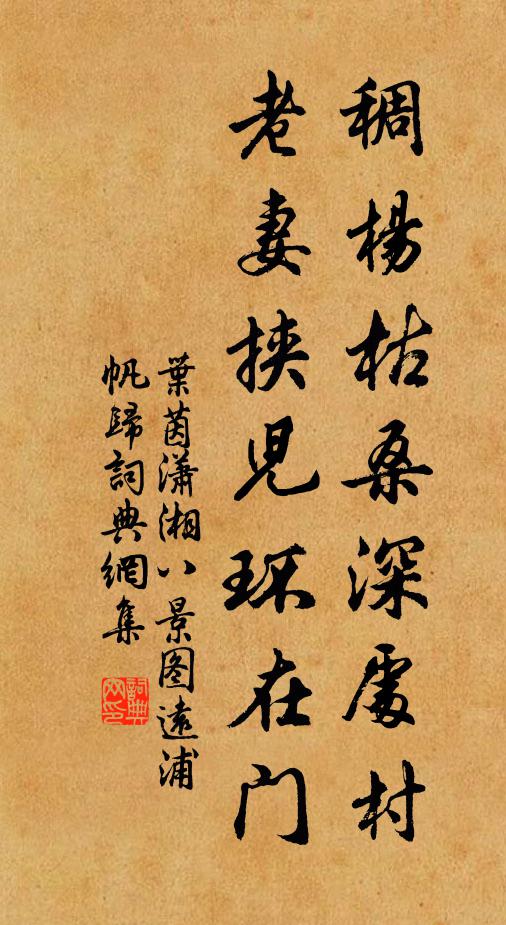 稠楊枯桑深處村
老妻挾兒环在门
葉茵瀟湘八景图遠浦
帆歸詞典網集
詞典
网印